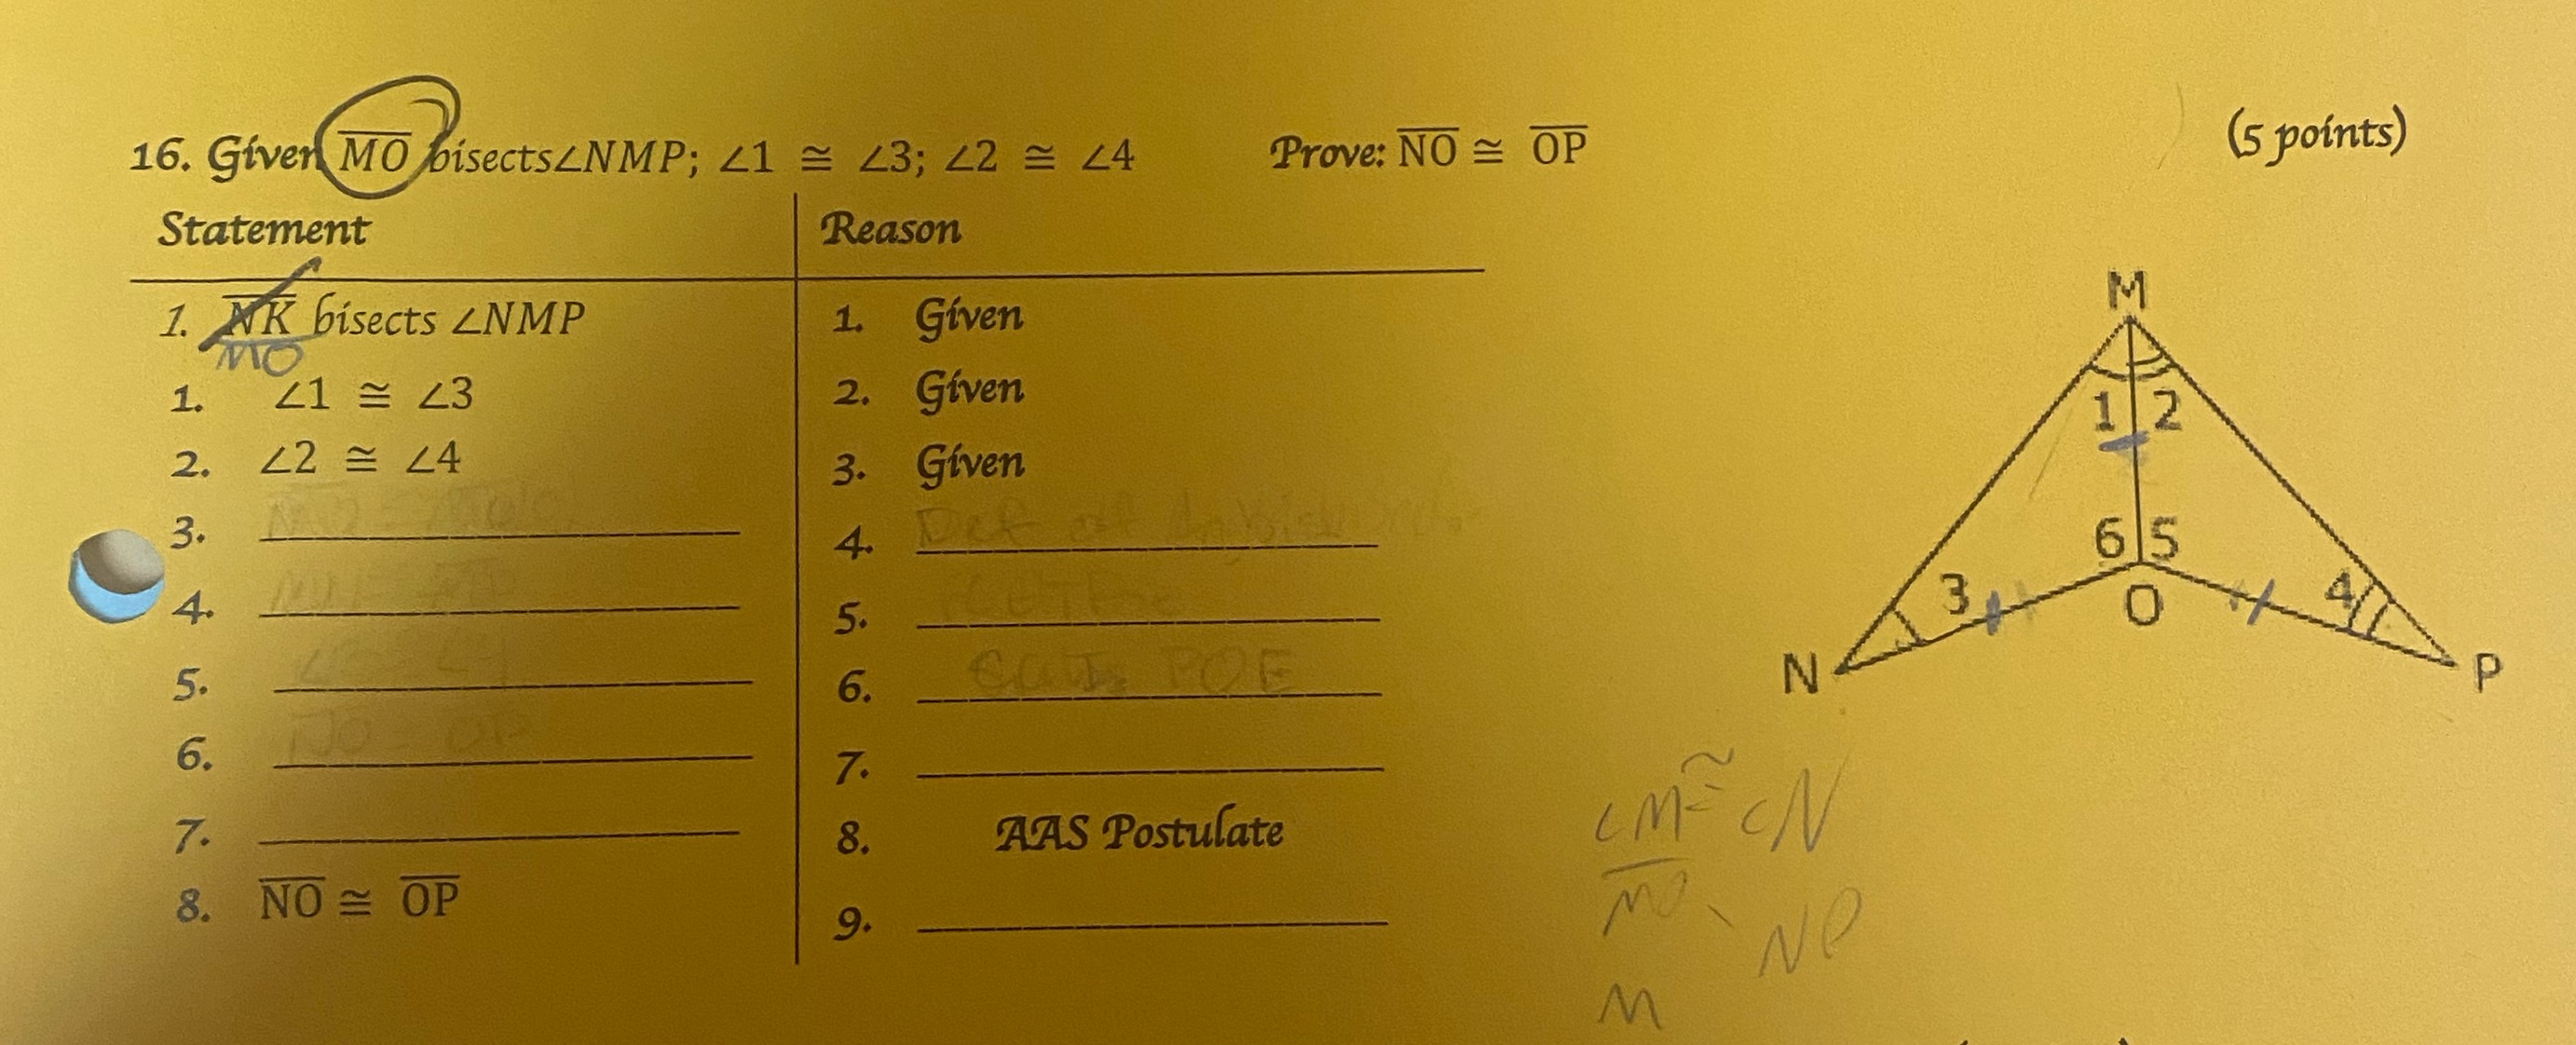 16. Given MO bisects∠NMP; ∠1 ≅ ∠3; ∠2 ≅ ∠4 Prove: NO ≅ OP (5 points)
Statement Reason
1. NK bisects ∠NMP 1. Given
MO
1. ∠1 ≅ ∠3 2. Given
2. ∠2 ≅ ∠4 3. Given
3. 4. Def of
4. 5.
5. 6. POE
6. NO = OP 7.
7. 8. AAS Postulate
8. NO ≅ OP 9.
M
1 2
6 5
3 4
O
N P
∠M ≅ ∠N
MO
NP
M